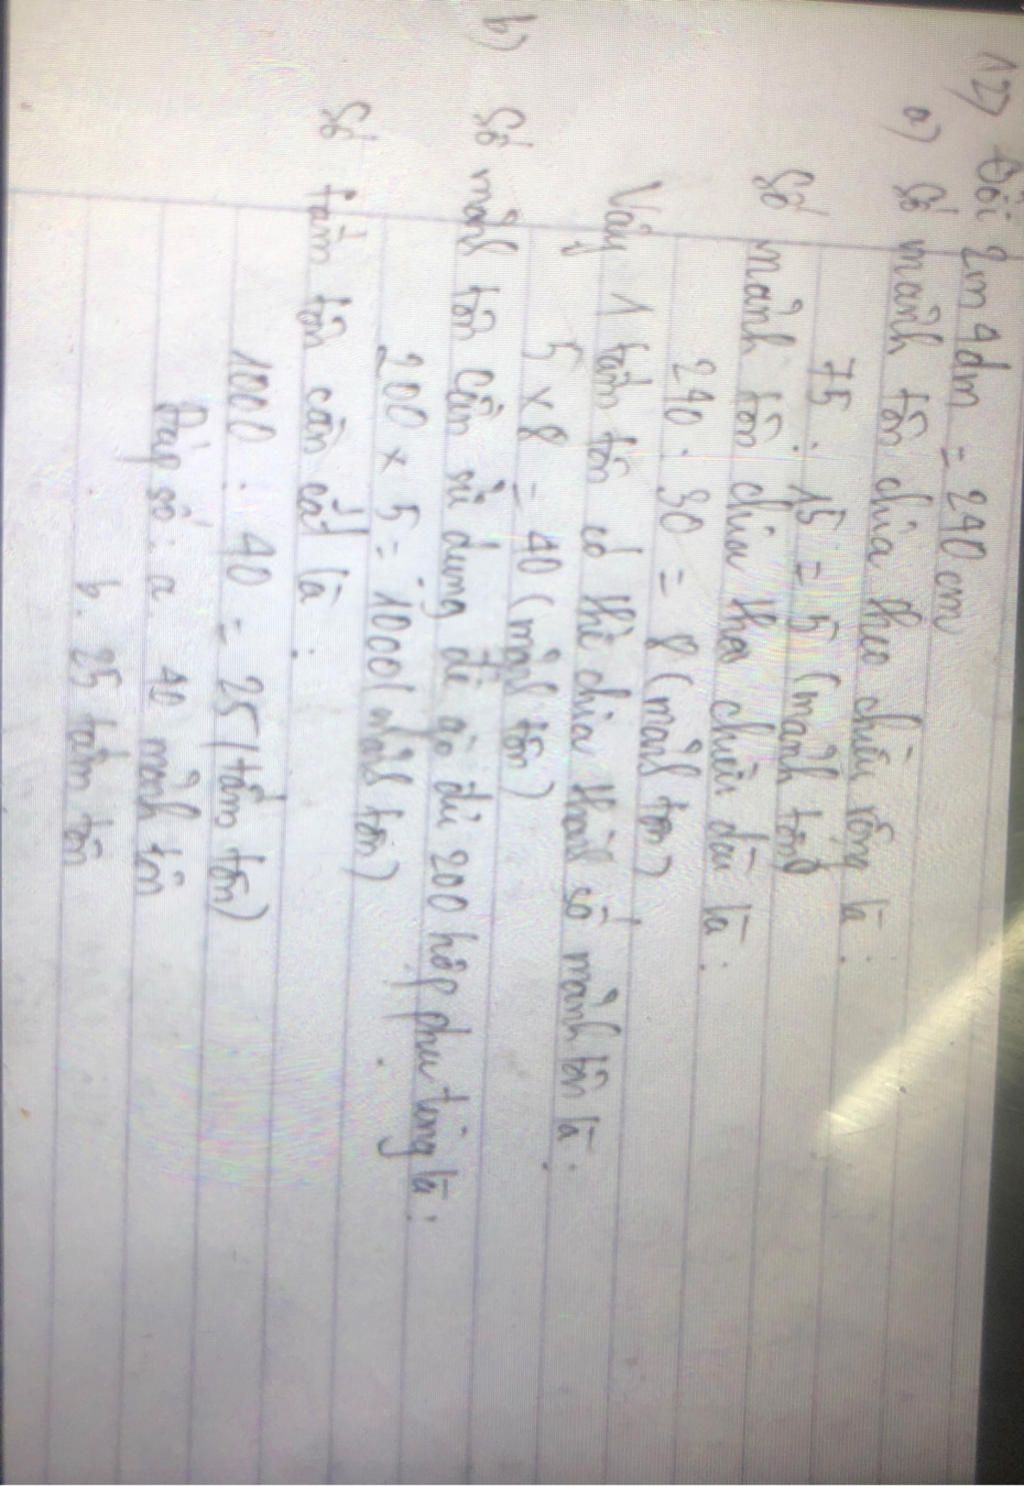 12) Đổi 2m4dm = 240cm
a) Số mảnh tôn chia theo chiều rộng là :
75 : 15 = 5 (mảnh tôn)
Số mảnh tôn chia theo chiều dài là :
240 : 30 = 8 (mảnh tôn)
Vậy 1 tấm tôn có thể chia thành số mảnh tôn là :
5 x 8 = 40 (mảnh tôn)
b) Số mảnh tôn cần sử dụng để gò đủ 200 hộp phụ tùng là :
200 x 5 = 1000 (mảnh tôn)
Số tấm tôn cần cắt là :
1000 : 40 = 25 (tấm tôn)
Đáp số : a 40 mảnh tôn
b. 25 tấm tôn